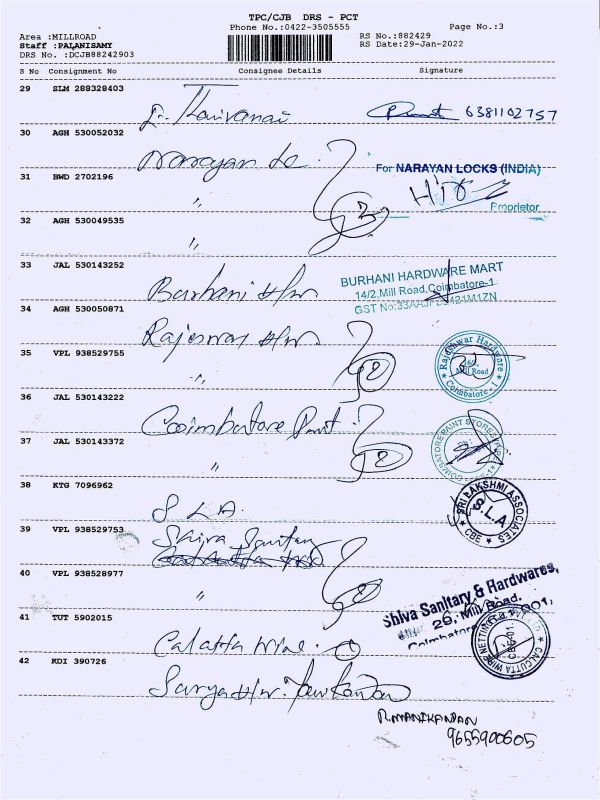 TPC/CJB DRS - PCT
Phone No.:0422-3505555
Page No.:3
Area :MILLROAD
RS No.:882429
Staff :PALANISAMY
RS Date:29-Jan-2022
DRS No. :DCJB88242903
S No Consignment No Consignee Details Signature
29 SLM 288328403
6381102757
30 AGH 530052032
Narayan Lo
31 BWD 2702196
For NARAYAN LOCKS (INDIA)
Proprietor
"
32 AGH 530049535
"
33 JAL 530143252
Burhani H/w
BURHANI HARDWARE MART
14/2, Mill Road, Coimbatore-1
34 AGH 530050871
Rajeswar H/w
35 VPL 938529755
"
Rajeshwar Hardware
Mill Road
Coimbatore - 1
36 JAL 530143222
Coimbatore Paint
37 JAL 530143372
"
COIMBATORE PAINT STORES
38 KTG 7096962
S. L. A.
SRI LAKSHMI ASSOCIATES
S.L.A
CBE
39 VPL 938529753
Shiva Sanitary
40 VPL 938528977
"
Shiva Sanitary & Hardwares,
26, Mill Road,
Coimbatore
41 TUT 5902015
Calcutta Wire.
CALCUTTA WIRE NETTING
42 KDI 390726
Surya H/w.
R.MANIKANDAN
9655900605